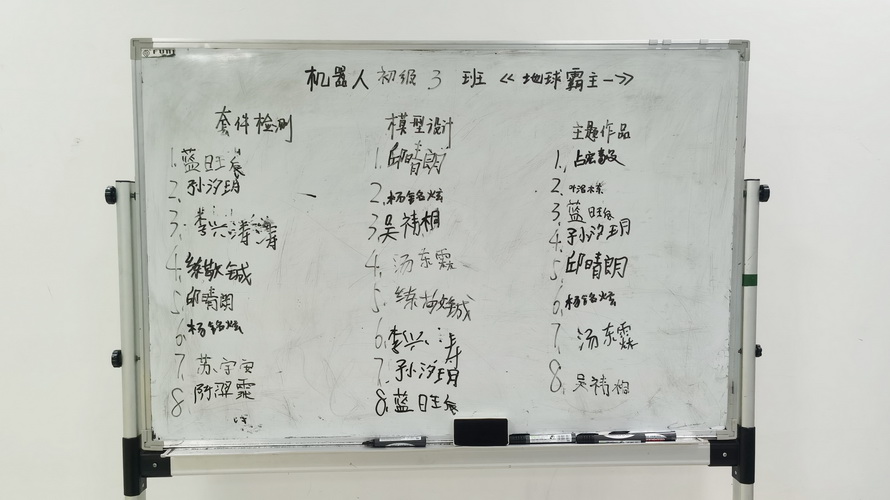 机器人初级3班《地球霸主一》
套件检测
1.蓝旺辰
2.孙汐玥
3.李兴涛
4.练
5.邱晴朗
6.杨铭炫
7.苏宇宙
8.阿翠霖
模型设计
1.邱晴朗
2.杨铭炫
3.吴祷桐
4.汤东霖
5.练
6.李兴涛
7.孙汐玥
8.蓝旺辰
主题作品
1.
2.
3.蓝旺辰
4.孙汐玥
5.邱晴朗
6.杨铭炫
7.汤东霖
8.吴祷桐